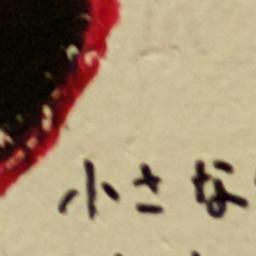 小さな